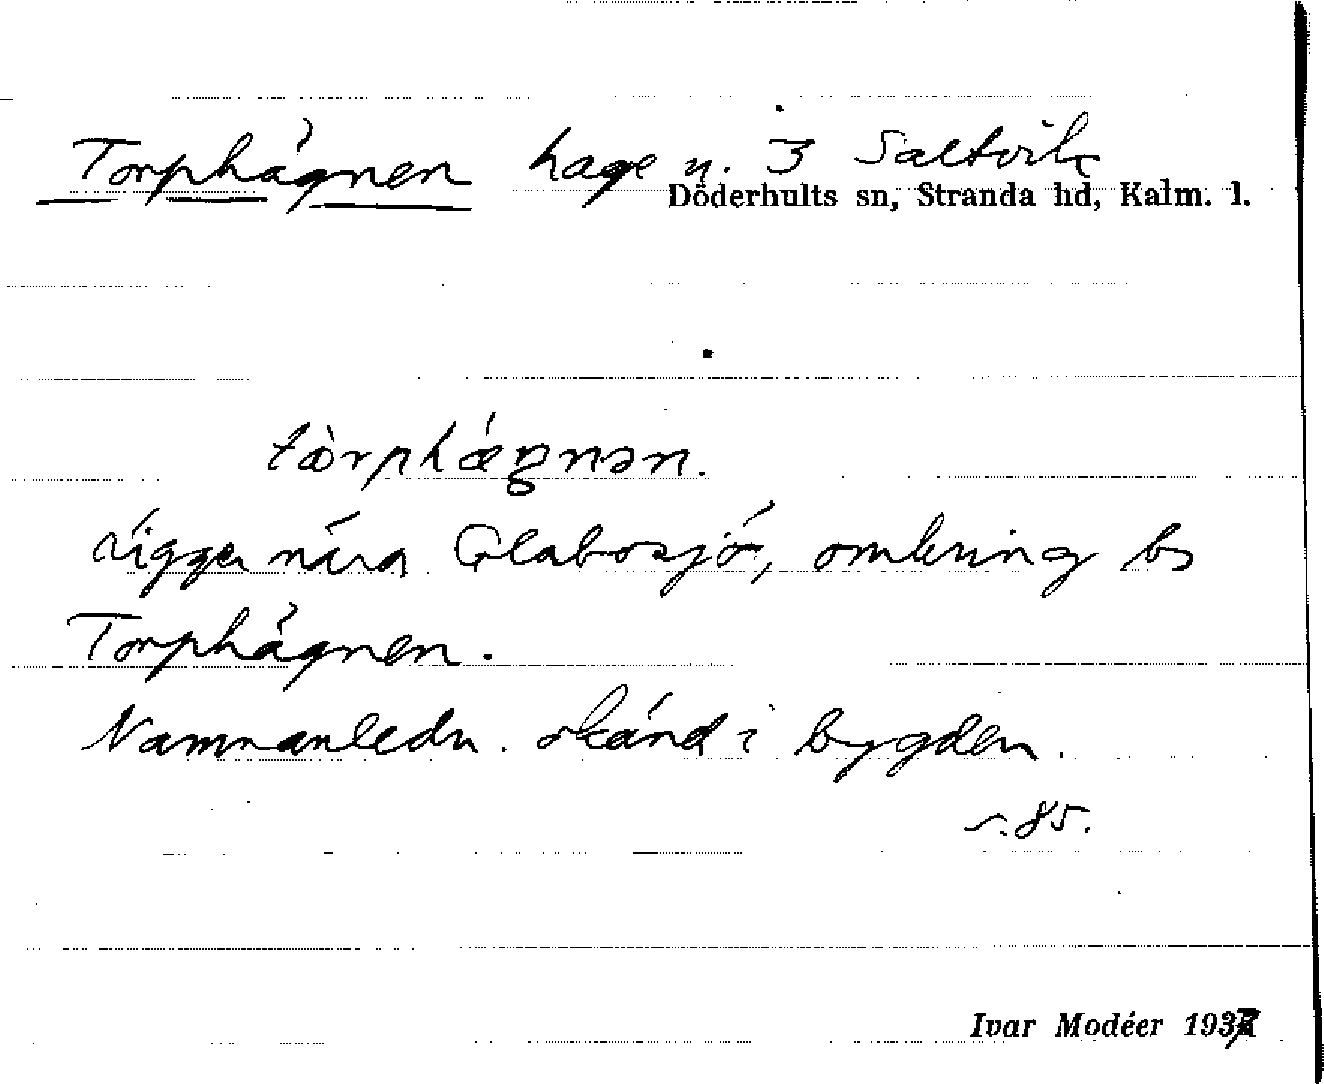 Torphägnen hage u. 3 Saltvik
Döderhults sn, Stranda hd, Kalm. l.
tòrphǽgnən.
Ligger nära Glabosjö, omkring bs
Torphägnen.
Namnanledn. okänd i bygden.
s. 85.
Ivar Modéer 1937